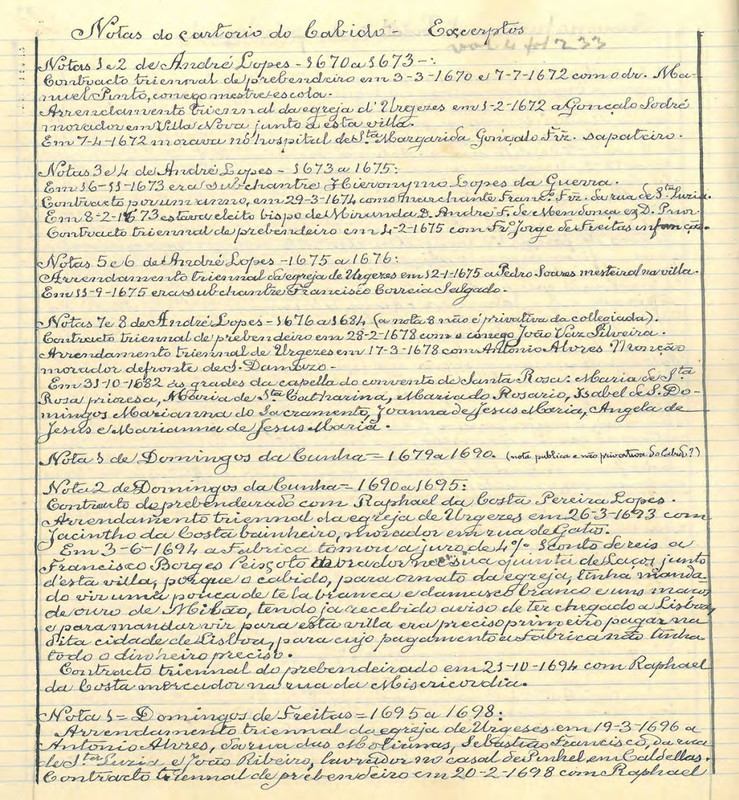 Notas do cartorio do Cabido - Excerptos
Notas 1 e 2 de André Lopes - 1670 a 1673 -:
Contracto triennal de prebendeiro em 3-3-1670 e 7-7-1672 com o dr. Ma-
nuel Pinto, conego mestre-escola.
Arrendamento triennal da egreja d'Urgezes em 1-2-1672 a Gonçalo Sodré
morador em Villa Nova junto a esta villa.
Em 7-4-1672 morava no hospital de Sta Margarida Gonçalo Frz. sapateiro.
Notas 3 e 4 de André Lopes - 1673 a 1675:
Em 16-11-1673 era subchantre Hieronymo Lopes da Guerra.
Contracto por um anno, em 29-3-1674 com o marchante Franco. Frz. da rua de Sta Luzia.
Em 8-2-1673 estava eleito bispo de Miranda D. André F. de Mendonça ex D. Prior.
Contracto triennal de prebendeiro em 4-2-1675 com Fr. Jorge de Freitas infanção.
Notas 5 e 6 de André Lopes - 1675 a 1676:
Arrendamento triennal da egreja de Urgezes em 12-1-1675 a Pedro Soares mesteiral na villa.
Em 11-9-1675 era subchantre Francisco Correia Salgado.
Notas 7 e 8 de André Lopes - 1676 a 1684 (a nota 8 não é privativa da collegiada).
Contracto triennal de prebendeiro em 28-2-1678 com o conego João Vaz Silveira.
Arrendamento triennal de Urgezes em 17-3-1678 com Antonio Alvres Monção
morador defronte de S. Damazo.
Em 31-10-1682 ás grades da capella do convento de Santa Rosa: Maria de Sta
Rosa prioresa, Maria de Sta Catharina, Maria do Rosario, Isabel de S. Do-
mingos Marianna do Sacramento, Joanna de Jesus Maria, Angela de
Jesus e Marianna de Jesus Maria.
Nota 1 de Domingos da Cunha = 1679 a 1690. (nota publica e não privativa do Cabido?)
Nota 2 de Domingos da Cunha = 1690 a 1695:
Contracto de prebendeirado com Raphael da Costa Pereira Lopes.
Arrendamento triennal da egreja de Urgezes em 26-3-1693 com
Jacintho da Costa bainheiro, morador em rua de Gatos.
Em 3-6-1694 a Fabrica tomou a juro de 4% 1 conto de reis a
Francisco Borges Peixoto na sua quinta de Laços junto
d'esta villa, porque o cabido, para ornato da egreja, tinha manda-
do vir uma pouca de tela branca e damasco branco e uns maços
de ouro de Milão, tendo ja recebido aviso de ter chegado a Lisboa,
e para mandar vir para esta villa era preciso primeiro pagar na
dita cidade de Lisboa, para cujo pagamento a Fabrica não tinha
todo o dinheiro preciso.
Contracto triennal do prebendeirado em 21-10-1694 com Raphael
da Costa mercador na rua da Misericordia.
Nota 1 = Domingos de Freitas = 1695 a 1698:
Arrendamento triennal da egreja de Urgeses em 19-3-1696 a
Antonio Alvres, da rua dos Moliunas, Sebastião Francisco, da rua
de Sta Luzia e João Ribeiro, lavrador no casal de Pinhel em Caldellas.
Contracto triennal de prebendeiro em 20-2-1698 com Raphael